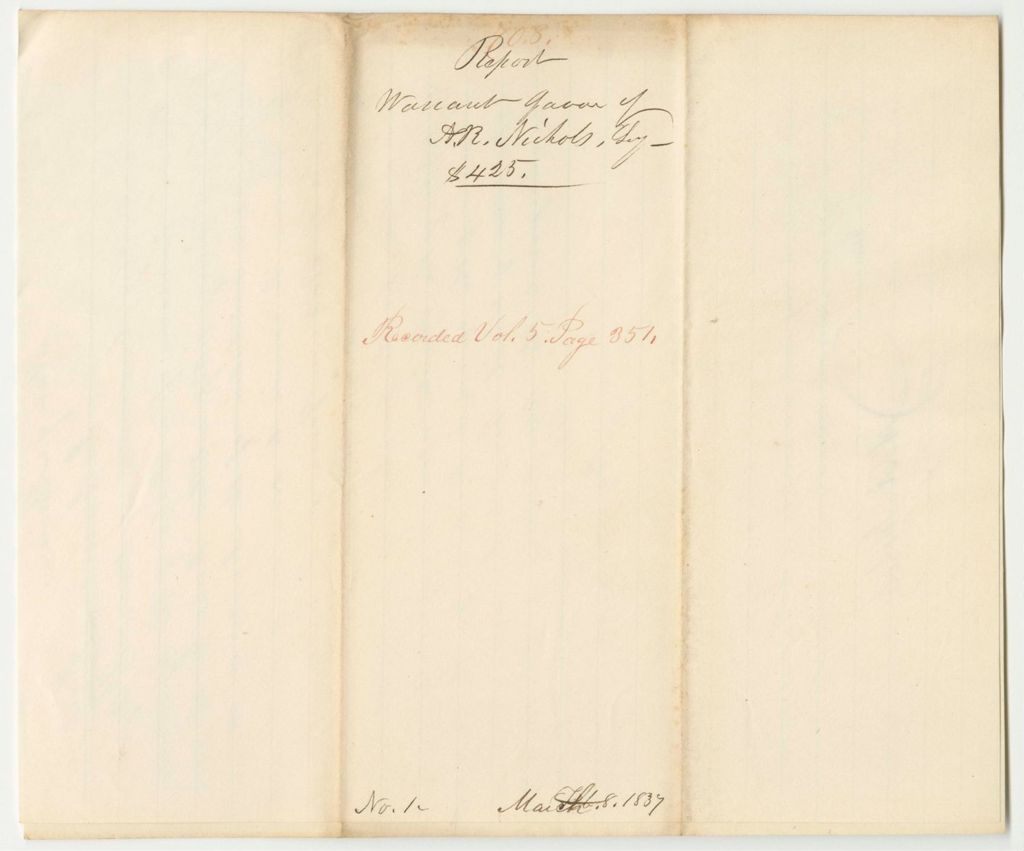 Report
Warrant favor of
A.R. Nichols, Secy
$425.
Recorded Vol. 5. Page 351.
No. 1
March 8. 1837